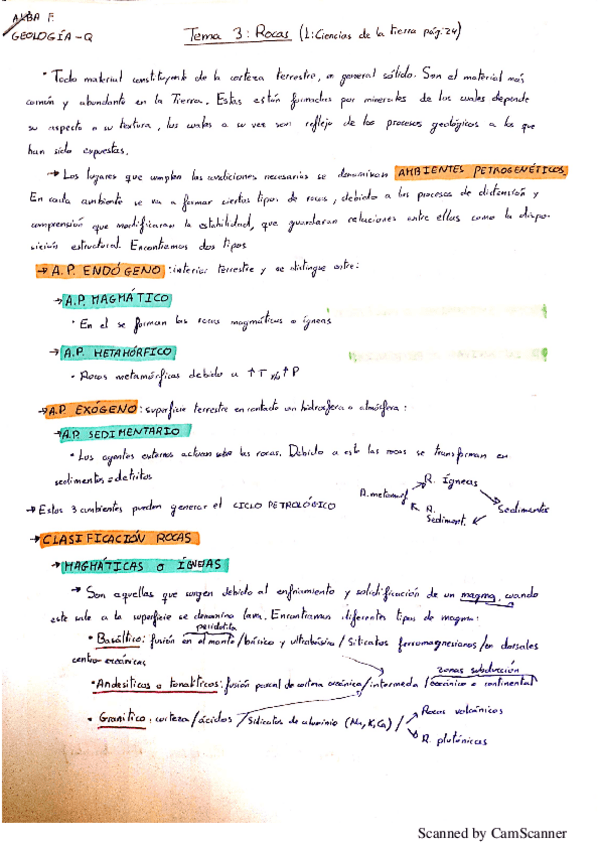 ALBA F.
GEOLOGÍA-Q
Tema 3: Rocas (L: Ciencias de la tierra pág. 24)
• Todo material constituyente de la corteza terrestre, en general sólido. Son el material más
común y abundante en la Tierra. Estas están formadas por minerales de los cuales depende
su aspecto o su textura, los cuales a su vez son reflejo de los procesos geológicos a los que
han sido expuestas.
→ Los lugares que cumplen las condiciones necesarias se denominan AMBIENTES PETROGENÉTICOS.
En cada ambiente se va a formar ciertos tipos de rocas, debido a los procesos de distensión y
comprensión que modificaran la estabilidad, que guardaran relaciones entre ellas como la dispo-
sición estructural. Encontramos dos tipos
→ A.P. ENDÓGENO: interior terrestre y se distingue entre:
→ A.P. MAGMÁTICO
• En el se forman las rocas magmáticas o ígneas
→ A.P. METAMÓRFICO
• Rocas metamórficas debido a ↑T y/o ↑P
→ A.P. EXÓGENO: superficie terrestre en contacto con hidrosfera o atmósfera:
→ A.P. SEDIMENTARIO
• Los agentes externos actuan sobre las rocas. Debido a esto las rocas se transforman en
sedimentos o detritos
→ Estos 3 ambientes pueden generar el CICLO PETROLÓGICO
R. Ígneas
R. metamorf
Sedimentos
R.
Sediment.
→ CLASIFICACIÓN ROCAS
→ MAGMÁTICAS o ÍGNEAS
→ Son aquellas que surgen debido al enfriamiento y solidificación de un magma, cuando
este sale a la superficie se denomina lava. Encontramos diferentes tipos de magma:
peridotita
• Basáltico: fusión en el manto / básico y ultrabásico / Silicatos ferromagnesianos / en dorsales
centro oceánicas
zonas subducción
• Andesíticos o tonalíticos: fusión parcial de corteza oceánica / intermedia / oceánico o continental
• Granítico: corteza / ácidos / Silicatos de aluminio (Na, K, Ca) / Rocas volcánicas
R. plutónicas
Scanned by CamScanner